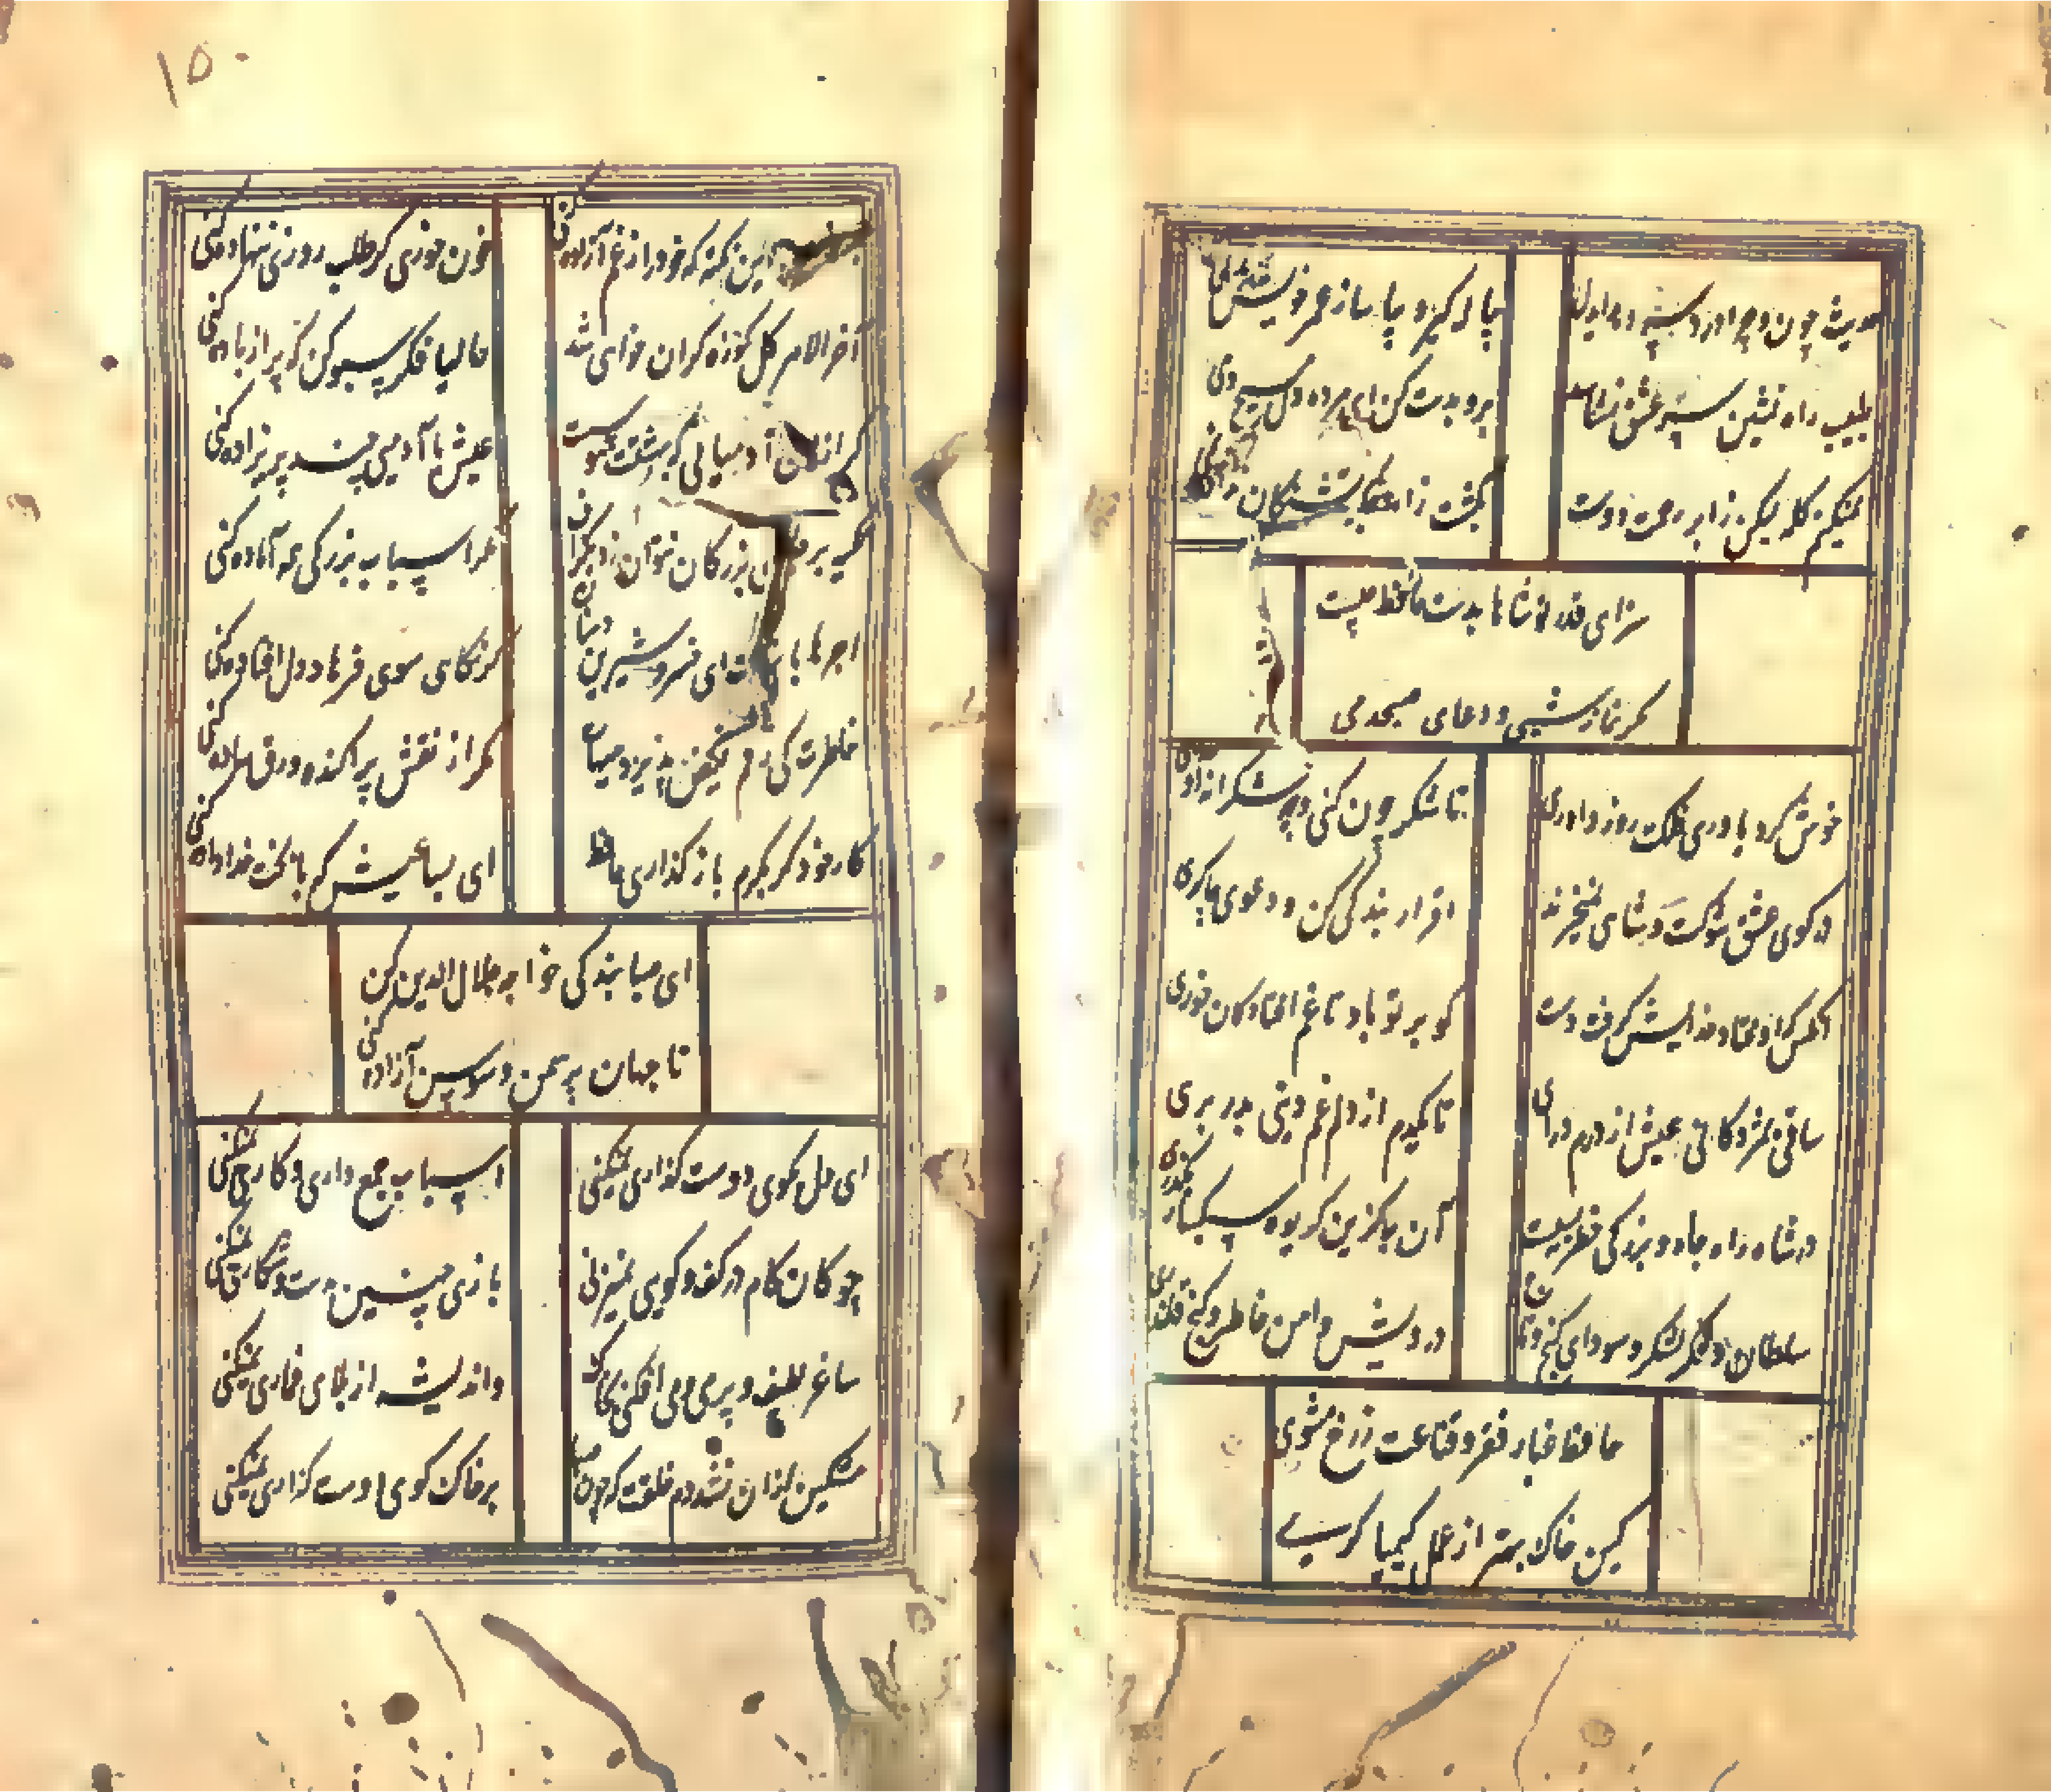 حدیث چون و چرا درد سر دهد ای دل پیاله کیر و بیاساز عمر خویش دمی
طبیب راه نشین سر عشق نشناسد برو بدست کن ای مرده دل مسیح دمی
نمیکنم کله لیکن ز ابر رحمت دوست بکشت زار جکر تشنکان نداد نمی
سزای قدر تو شاها بدست حافظ چیست
کر نماز شبی و دعای صبحدمی
خوش کرد یاوری فلکت روز داوری تا شکر چون کنی و چه شکرانه آوری
در کوی عشق شوکت و شاهی نمیخرند اقرار بندکی کن و دعوی چاکری
آنکس که اوفتاد و خدایش کرفت دست کو بر تو باد تا غم افتادکان خوری
ساقی بمژدکانی عیش از درم درای تا یکدم از دلم غم دنیی بدر بری
در شاه راه جاه و بزرکی خطر بسیست آن به کزین کریوه سبکبار بکذری
سلطان و فکر لشکر و سودای کنج و تاج درویش و امن خاطر و کنج قلندری
حافظ غبار فقر و قناعت ز رخ مشوی
کین خاک بهتر از عمل کیمیا کری
۱۵۰
این نکته که خود را ز غم آزاده کنی خون خوری کر طلب روزی ننهاده کنی
آخر الامر کل کوزه کران خواهی شد حالیا فکر سبو کن که پر از باده کنی
کر از آن آدمیانی که بهشتت هوسست عیش با آدمیی چند پریزاده کنی
تکیه بر جای بزرکان نتوان زد بکزاف مکر اسباب بزرکی همه آماده کنی
اجرها باشدت ای خسرو شیرین دهنان کر نکاهی سوی فرهاد دل افتاده کنی
خاطرت کی رقم فیض پذیرد هیهات مکر از نقش پراکنده ورق ساده کنی
کار خود کر بکرم باز کذاری حافظ ای بسا عیش که با بخت خداداده کنی
ای صبا بندکی خواجه جلال الدین کن
تا جهان پر سمن و سوسن آزاده کنی
ای دل بکوی دوست کذاری نمیکنی اسباب جمع داری و کاری نمیکنی
چوکان کام در کف و کویی نمیزنی بازی چنین بدست و شکاری نمیکنی
ساغر لطیف و پر می و می افکنی بخاک و اندیشه از بلای خماری نمیکنی
مشکین از آن نشد دم خلقت که چون صبا بر خاک کوی دوست کذاری نمیکنی